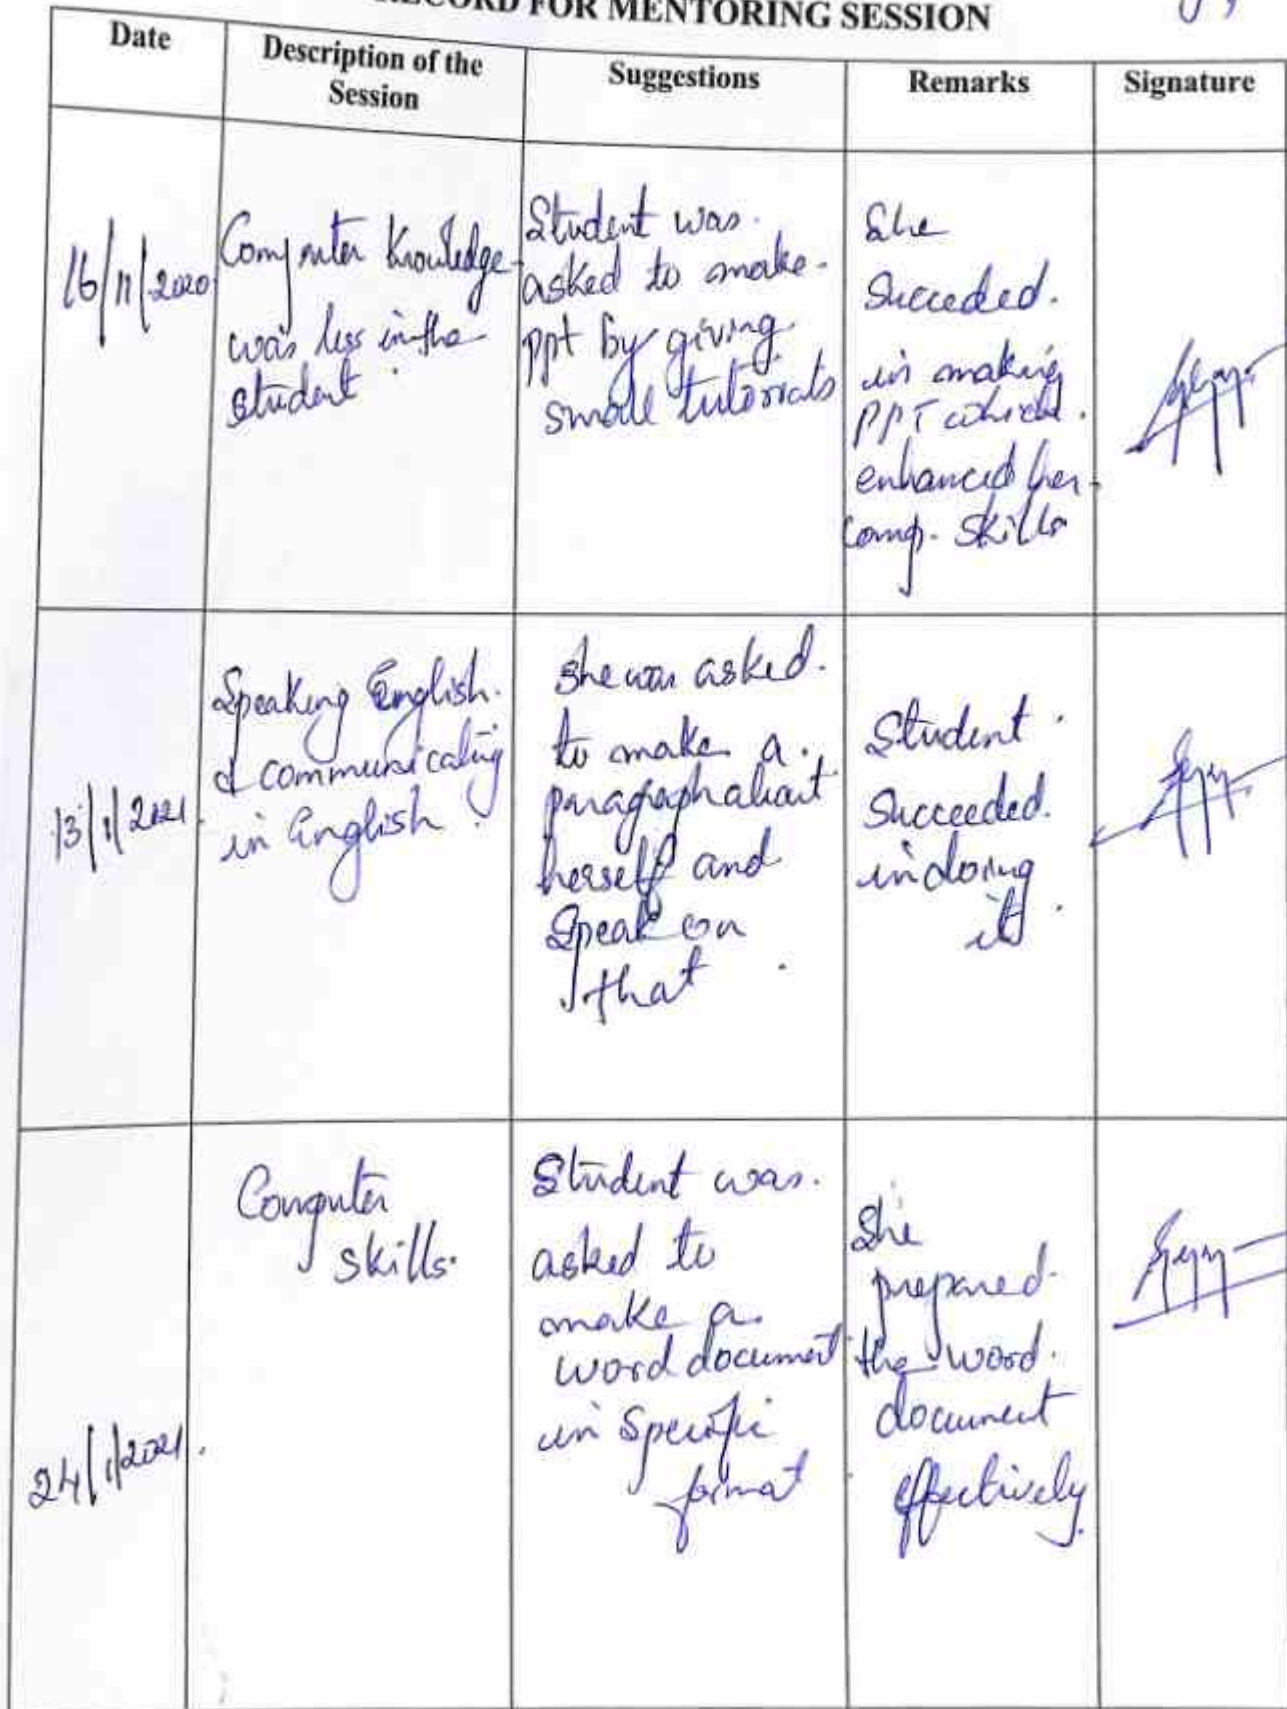 RECORD FOR MENTORING SESSION
Date
Description of the
Session
Suggestions
Remarks
Signature
16/11/2020
Computer Knowledge
was less in the
student.
Student was.
asked to make.
ppt by giving
small tutorials
She
Succeded.
in making
PPT which.
enhanced her
comp. Skills
13/1/2021.
Speaking English.
& communicating
in English.
She was asked.
to make a.
paragraph about
herself and
Speak on
that.
Student.
Succeeded.
in doing
it.
24/1/2021.
Computer
skills.
Student was.
asked to
make a.
word document
in Specific
format.
She
prepared.
the word.
document
effectively.